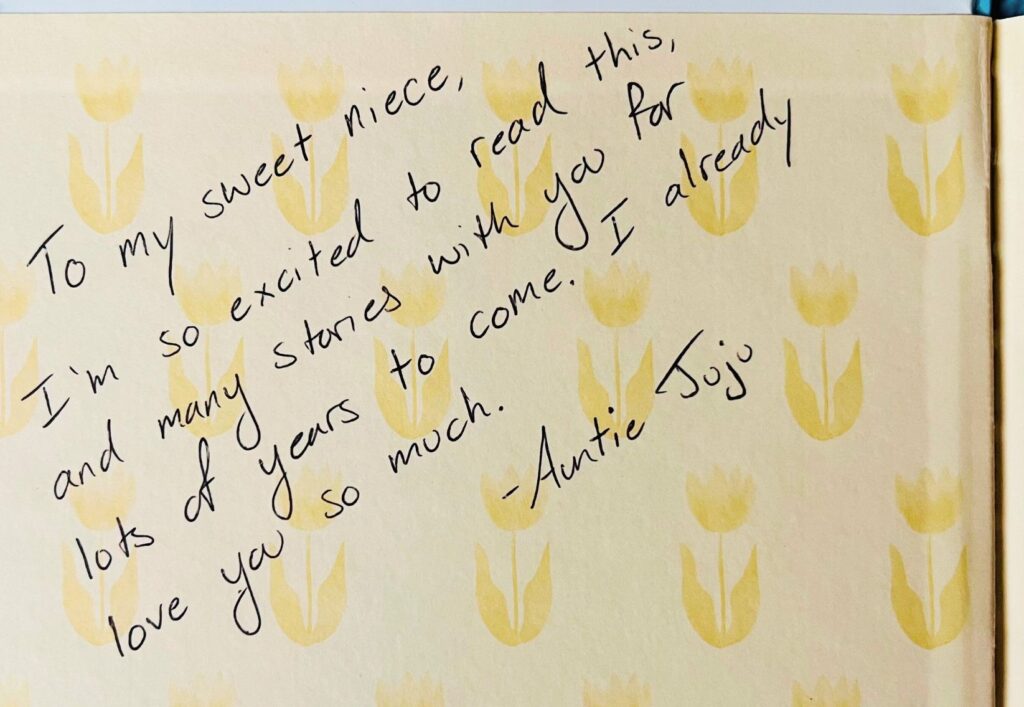 To my sweet niece,
I'm so excited to read this,
and many stories with you for
lots of years to come. I already
love you so much.
-Auntie Juju